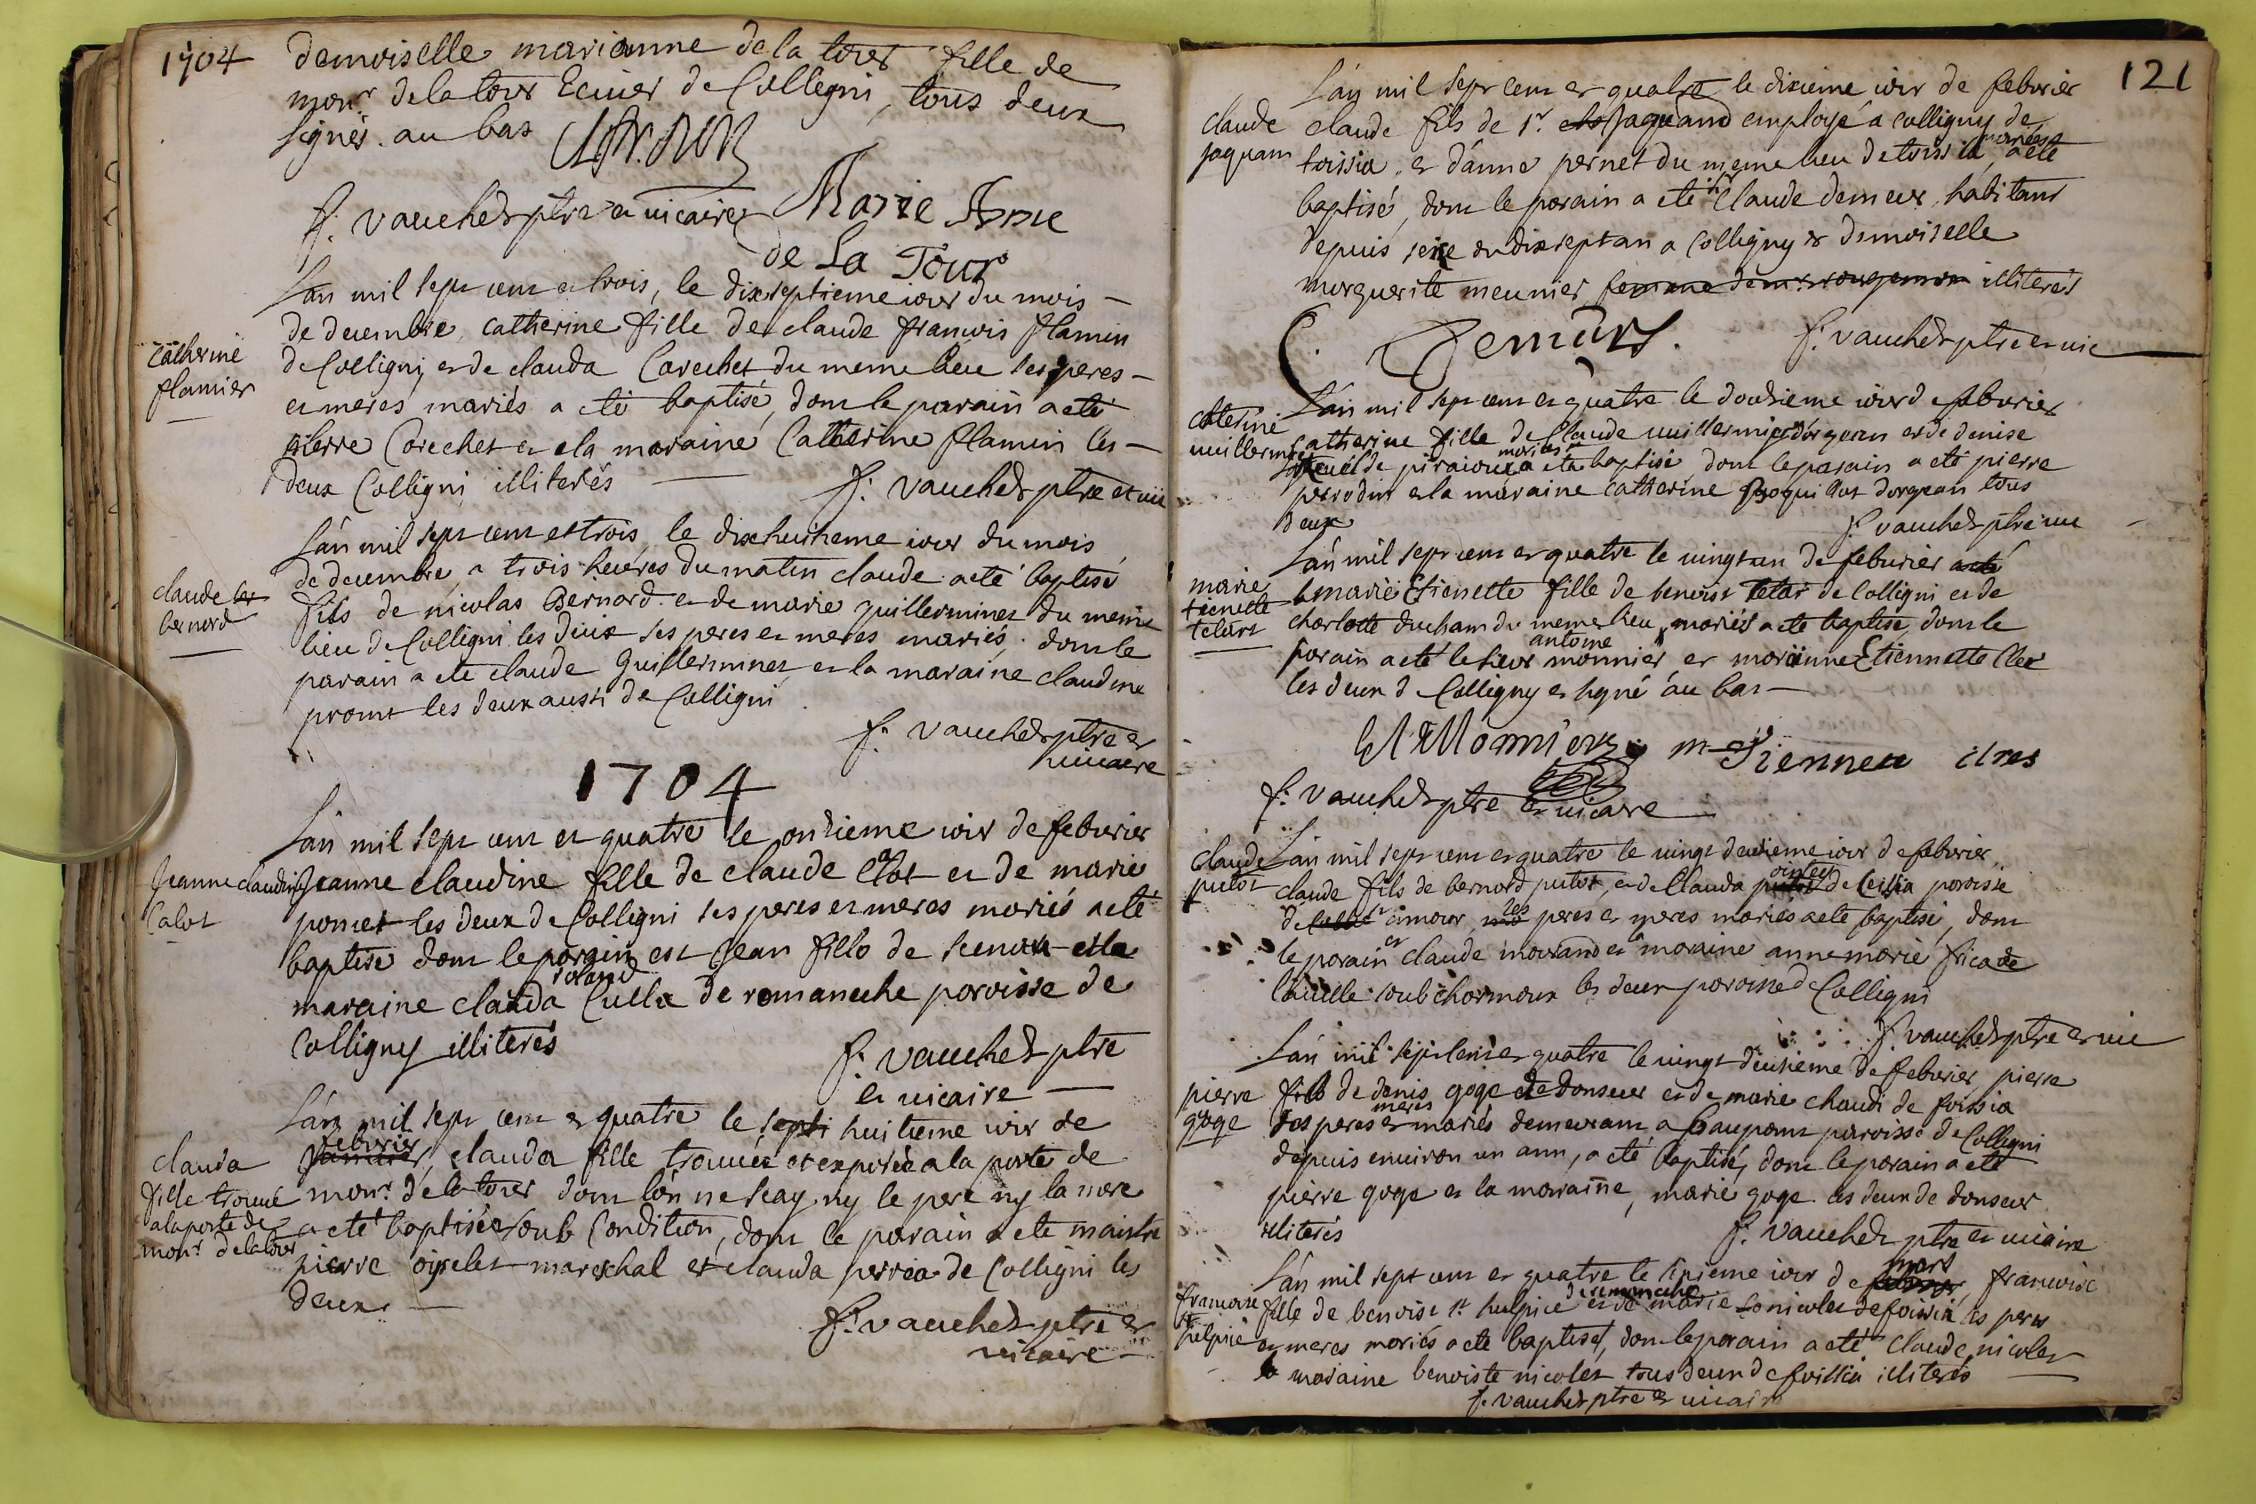 1704
demoiselle marianne de la tour fille de
monr de la tour Ecuier de Colligni, tous deux
signés au bas
f: vaucher ptre et vicaire Marie Anne
de La Tour
Lan mil sept cent et trois, le dixseptieme iour du mois
de decembre, catherine fille de claude francois flamin
catherine
flamier
de Colligni, et de clauda Carechet du meme lieu ses peres
et meres mariés a eté baptisé, dont le parain a eté
pierre Corechet et la maraine Catherine flamin les
deux Colligni illiterés
f: vaucher ptre et vic
Lán mil sept cent et trois, le dixhuitieme iour du mois
de decembre, a trois heures du matin claude a eté baptisé
claude
bernord
fils de nicolas Bernard et de marie guillerminet du meme
lieu de Colligni les deux ses peres et meres mariés. dont le
parain a ete claude Guillerminet et la maraine claudine
promt les deux aussi de Colligni
f: vaucher ptre et
vicaire
1704
Lán mil sept cent et quatre le onzieme iour de febvrier
Jeanne claudine
Calot
Jeanne claudine fille de claude Clot et de marie
poncet les deux de Colligni ses peres et meres mariés a eté
baptisé dont le parain est Jean fills de et la
maraine clauda Culla de romaneche paroisse de
Colligny illiterés
f: vaucher ptre
et vicaire
Lán mil sept cent et quatre le septi huitieme iour de
febvrier
clauda
fille trouvé
a la porte de
monr de la tour
clauda fille trouvée et exposée a la porte de
monr de la tour dont lón ne scay ny le pere ny la mere
a eté baptisée soub Condition, dont le parain a ete maistre
pierre oyselet mareschal et clauda perrea de Colligni les
deux
f: vaucher ptre et
vicaire
121
Lán mil sept cent et quatre le dixieme iour de febvrier
claude
jaquam
claude fils de sr. Jaquand employé a colligny de
toissia, et dánne pernet du meme lieu de toissia, mariés a eté
baptisé, dont le parain a eté sr Claude demeur, habitant
depuis seize ou dixsept an a Colligny et demoiselle
marguerite meunier, illiterés
C. Demurs.
f: vaucher ptre et vic
Lán mil sept cent et quatre le douzieme iour de febvrier
catherine fille de Claude vuillermier et de denise
de piraioux mariés a eté baptisé dont le parain a eté pierre
perrodin et la maraine catherine dorgean tous
deux
f: vaucher ptre vic
Lán mil sept cent et quatre le vingt un de febvrier a eté
marie
tienette
telart
marie Etienette fille de benoist telar de Colligni et de
charlotte ducham du meme lieu, mariés a eté baptisé, dont le
parain a eté le sieur antoine monnier, et marianne Etiennette Cler
les deux de Colligny et signé au bas
A Monnier m etiennete clres
f: vaucher ptre et vicaire
claude
putot
Lán mil sept cent et quatre le vingt deuxieme iour de febvrier
claude fils de bernord putot, et de Clauda de Ceissia paroisse
de st amour, ses peres et meres mariés a eté baptisé, dont
le parain est claude mourand et la maraine anne marie frica de
les deux paroisse de Colligni
f: vaucher ptre et vic
Lán mil sept cent et quatre le vingt deuxieme de febvrier, pierre
pierre
goge
fils de denis goge de donseur et de marie chaudi de foissia
ses peres et meres mariés demeurant a paroisse de Colligni
depuis environ un ann, a eté baptisé, dont le parain a eté
pierre goge et la maraine, marie goge les deux de donseur
illiterés
f. vaucher ptre et vicaire
Lán mil sept cent et quatre le sixieme iour de mars, francoise
francoise
st
sulpice
fille de benoist st sulpice de romaneche et de marie nicolet de foissia ses peres
et meres mariés a eté baptisé, dont le parain a eté claude nicolet
la maraine benoiste nicolet tous deux de foissia illiterés
f. vaucher ptre et vicair